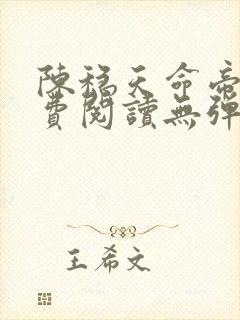 陳稳天命帝
費閱讀無彈
王希文